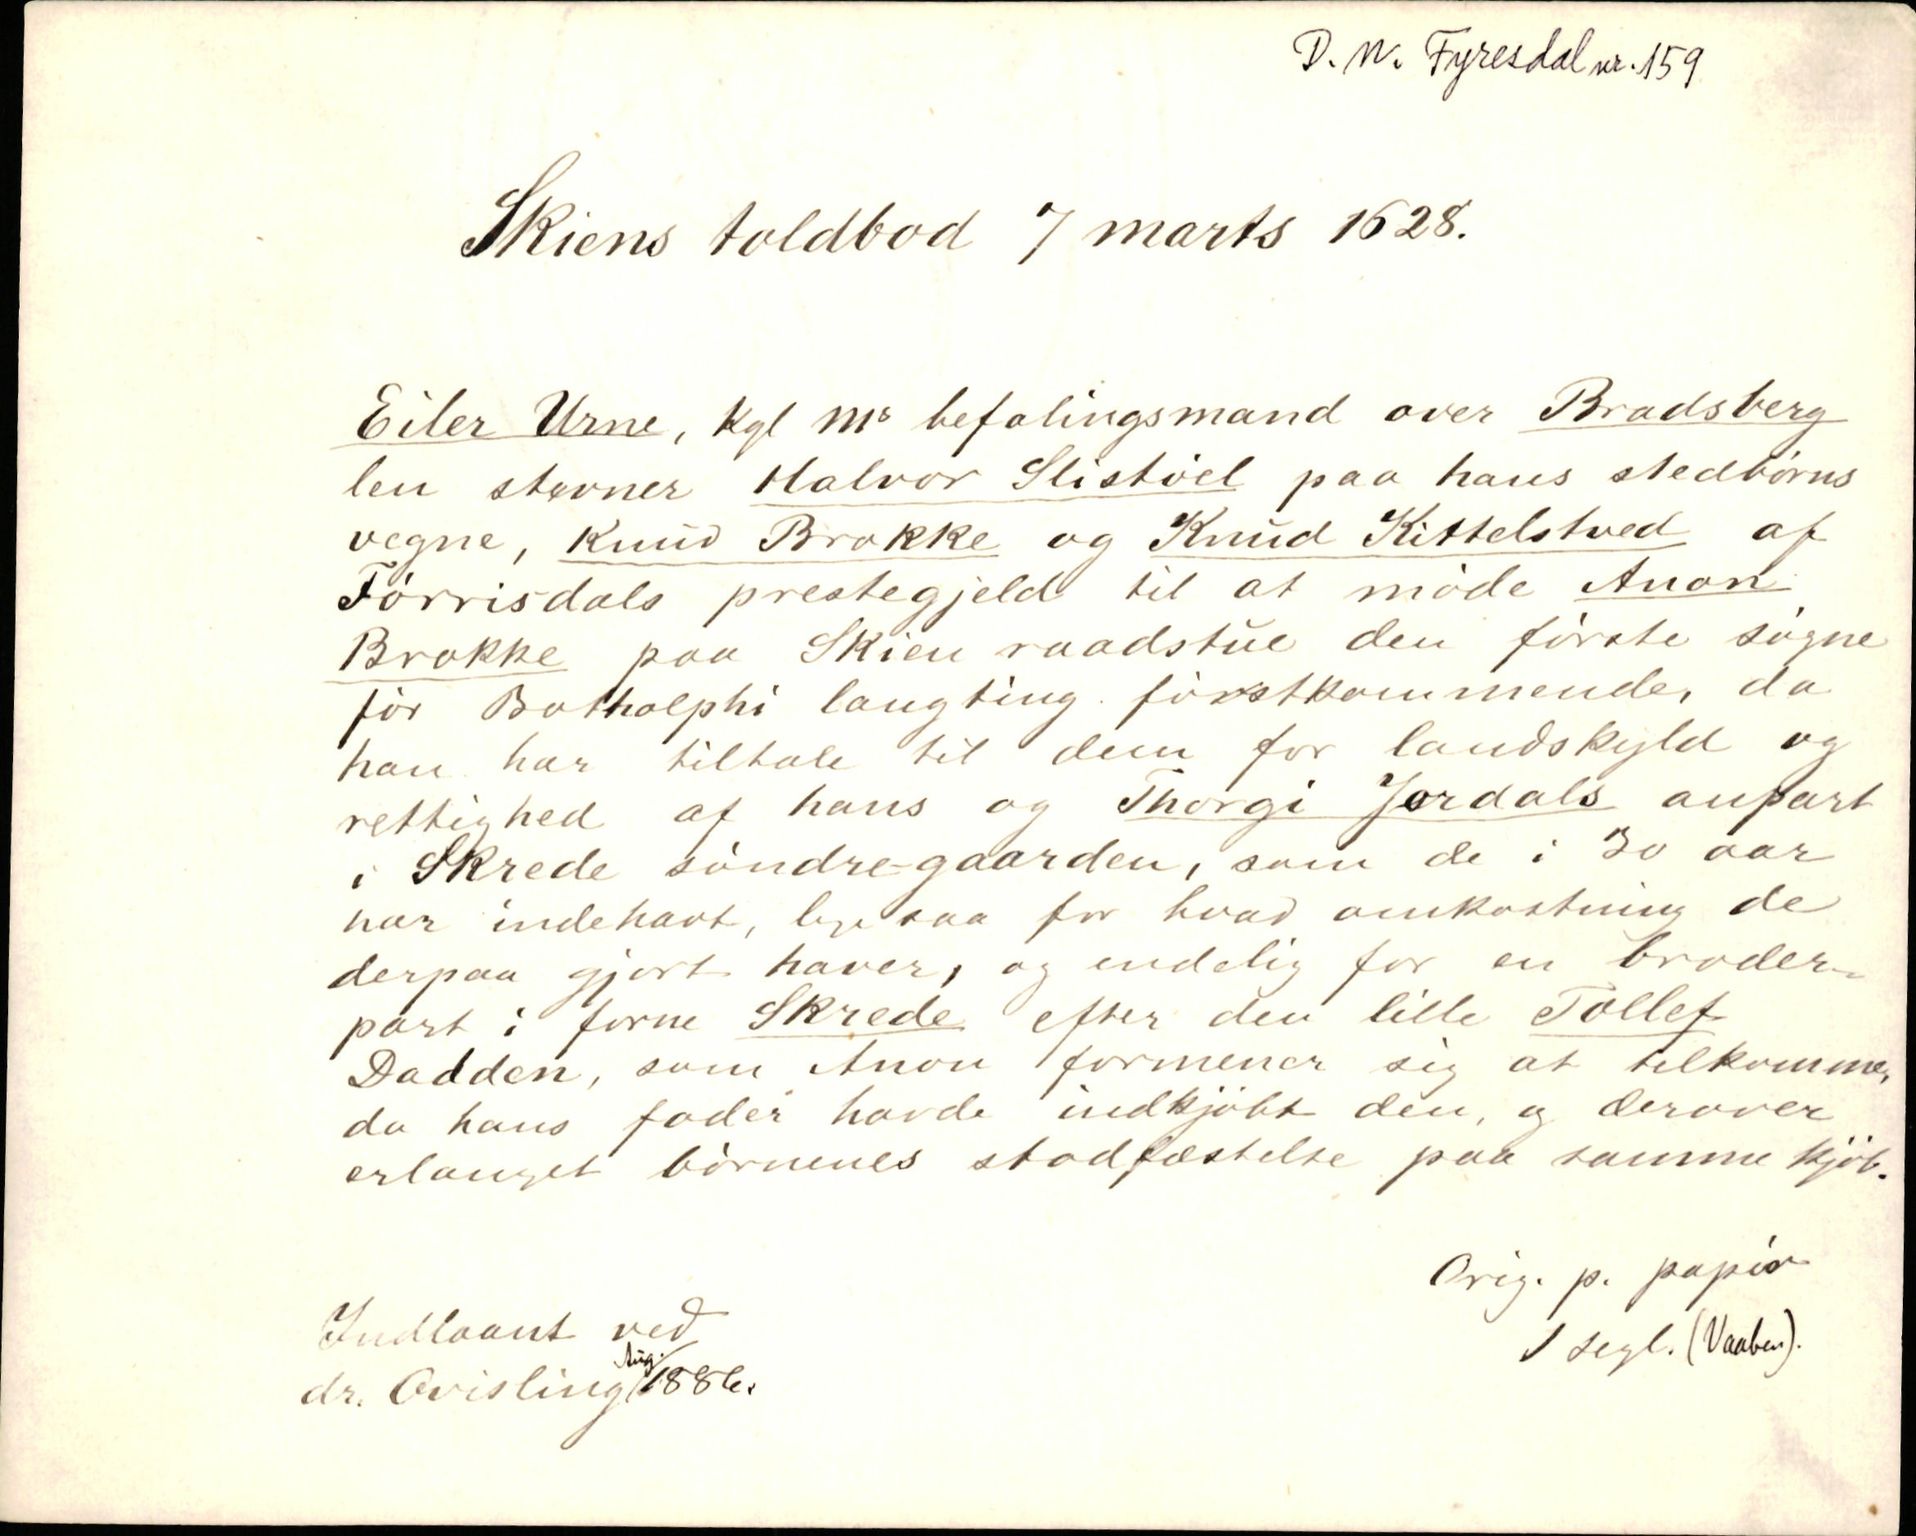 D. N. Fyresdal nr. 159
Skiens toldbod 7 marts 1628.
Eiler Urne, kgl Ms befalingsmand over Bradsberg
len stevner Halvor Slistöel paa hans stedbörns
vegne, Knud Brokke og Knud Kittelstved af
Förrisdals prestegjeld til at möde Anon
Brokke paa Skien raadstue den förste sögne
för Botholphi laugting förstkommende, da
han har tiltale til dem for landskyld og
rettighed af hans og Thorgi Jordals anpart
i Skrede söndre-gaarden, som de i 30 aar
har indehavt, lige saa for hvad omkostning de
derpaa gjort haver, og endelig for en broder-
part i forne Skrede efter den lille Tollef
Dadden, som Anon formener sig at tilkomme,
da hans fader havde indkjöbt den, og derover
erlanget börnenes stadfæstelse paa samme kjöb.
Orig. p. papir
1 segl. (Vaaben).
Indlaant ved
dr. Qvisling Aug. 1886.